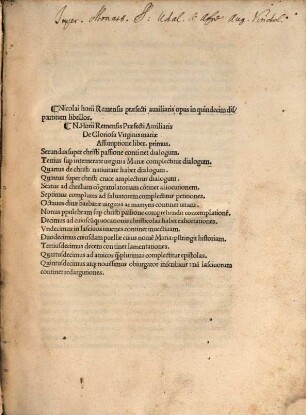 Nicolai horii Remensis præfecti auxiliaris opus in quindecim dis
partitum libellos.
N. Horii Remensis Præfecti Auxiliaris
De Gloriosa Virginis mariæ
Assumptione liber. primus.
Secundus super christi passione continet dialogum.
Tertius sup intemerate virginis Mariæ complectitur dialogum.
Quartus de christi natiuitate habet dialogum.
Quintus super christi cruce amplectitur dialogum.
Sextus ad christum cōgratulatoriam cōtinet allocutionem.
Septimus complures ad saluatorem complectitur petitiones.
Octauus diuæ barbaræ virginis ac martyris continet vitam.
Nonus ppulchram sup christi passione comprehendit contemplationē.
Decimus ad eius cōsequutionis christicolas habet exhortationes.
Vndecimus in lasciuos iuuenes continet inuectiuam.
Duodecimus eiusdam puellæ cuius nomē Maria pstringit historiam.
Tertiusdecimus decem continet lamentationes.
Quartusdecimus ad amicos complectitur epistolas.
Quintusdecimus atq nouissimus obiurgator lasciuorum
continet redargutiones.